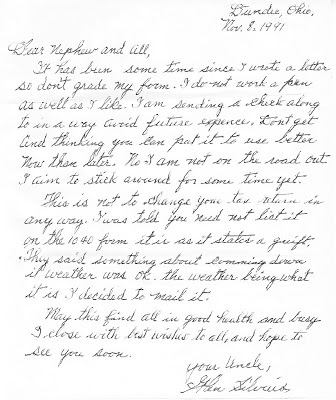 Dundee, Ohio,
Nov. 8, 1991
Dear Nephew and All,
It has been some time since I wrote a letter
so don't grade my form. I do not work a pen
as well as I like. I am sending a check along
to in a way avoid future expence. Dont get
and thinking you can put it to use better
Now than later. No I am not on the road out
I aim to stick around for some time yet.
This is not to change your tax return in
any way. I was told you need not list it
on the 1040 form it is as it states a guift.
They said something about comming down
if weather was ok. the weather being what
it is I decided to mail it.
May this find all in good health and busy
I close with best wishes to all, and hope to
see you soon.
your Uncle,